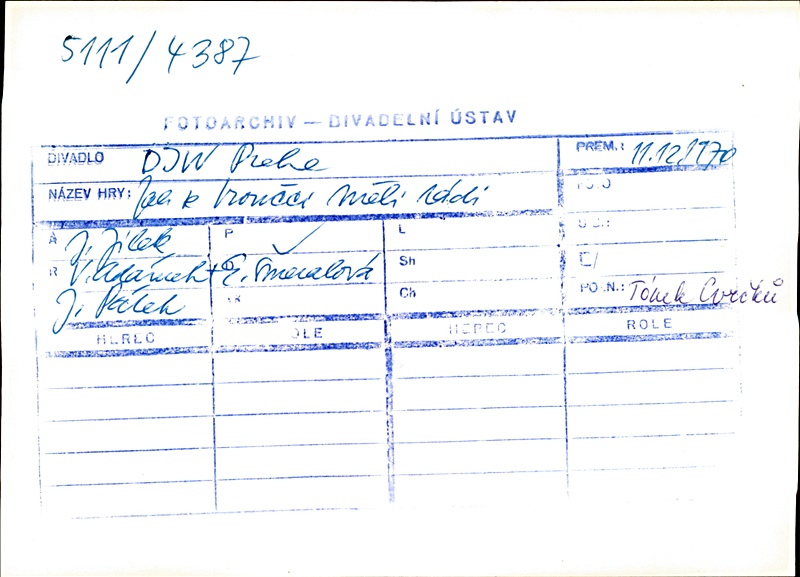 5111/4387
FOTOARCHIV — DIVADELNÍ ÚSTAV
DIVADLO DJW Praha
PREM.: 11.12.1970
NÁZEV HRY: Jak se Brouččci měli rádi
A J. Jílek P L
R V. Adámek + E. Smeralová Sh
J. Pálek Ch
POZN.: Tónek Cvrčků
HEREC ROLE HEREC ROLE